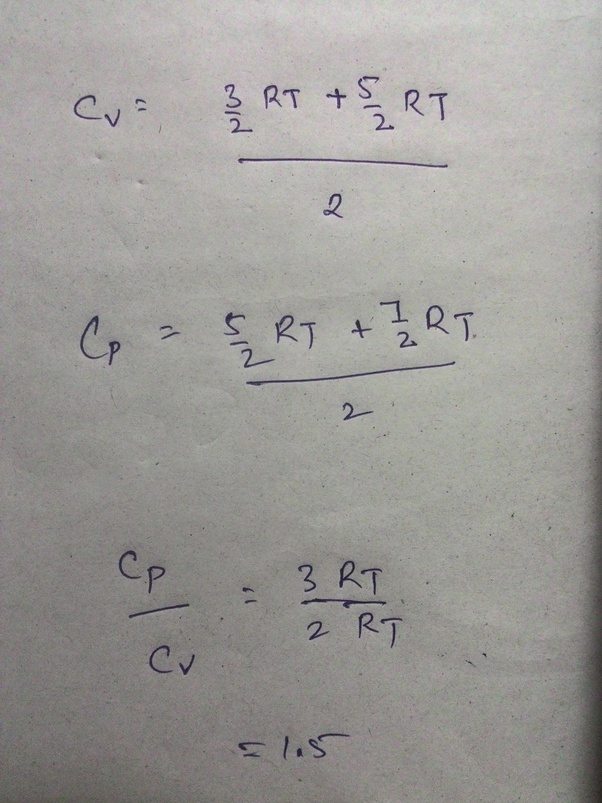 Cv = 3/2 RT + 5/2 RT
2
Cp = 5/2 RT + 7/2 RT
2
Cp = 3 RT
Cv 2 RT
= 1.5